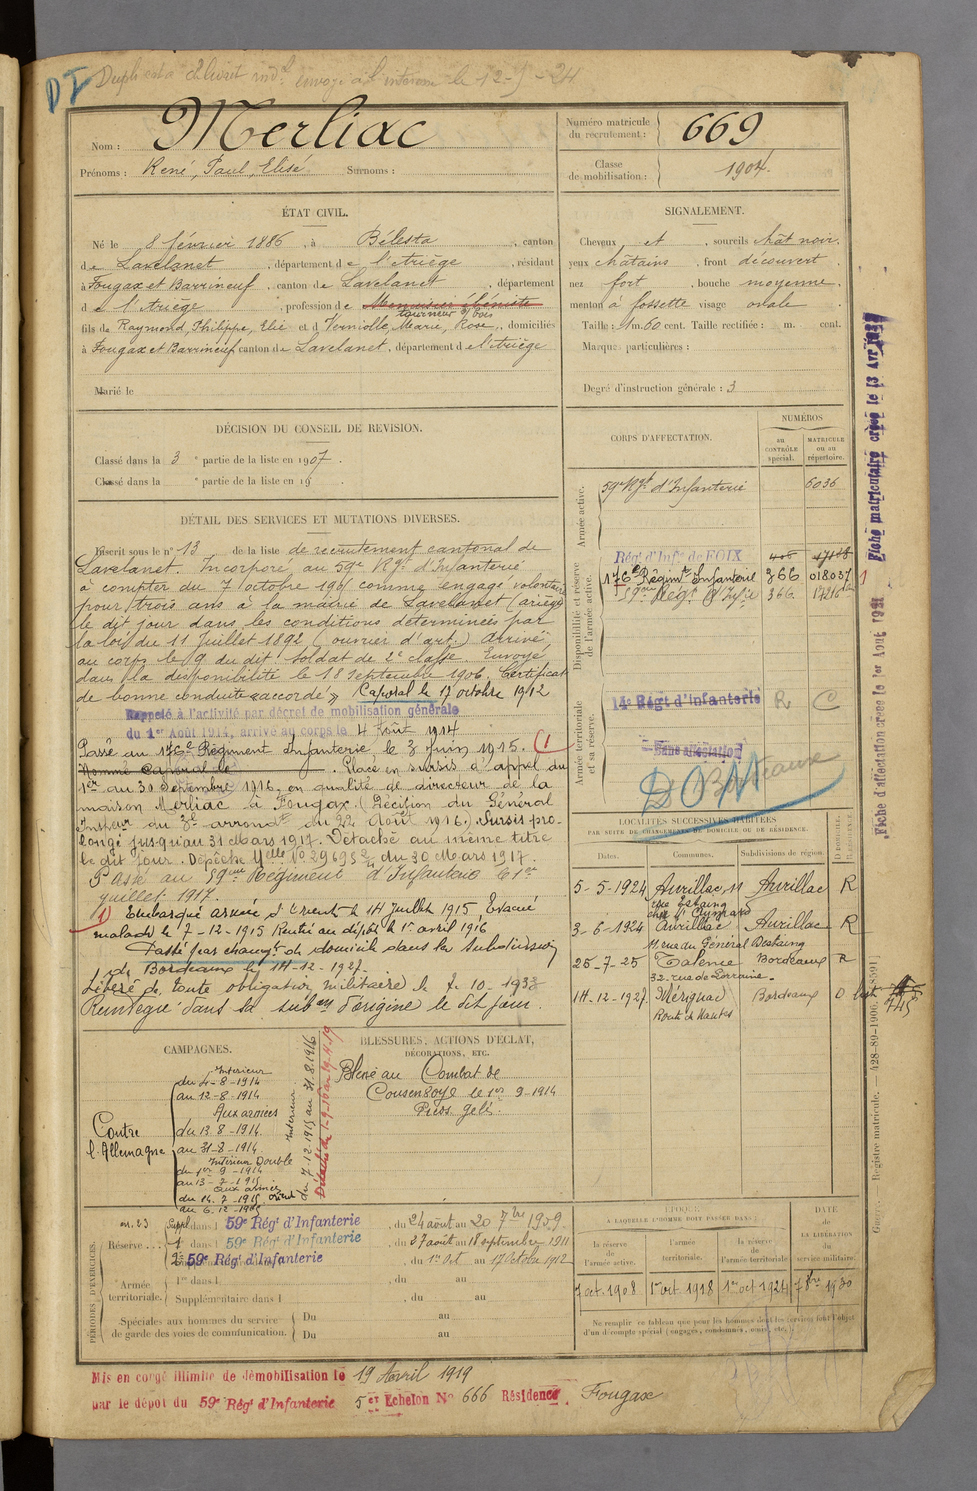 DI Duplicata du livret ind.el envoyé à l'intéressé le 12-9-24
Nom : Merliac
Prénoms : René, Paul, Elisé Surnoms :
Numéro matricule du recrutement : 669
Classe de mobilisation : 1904
ÉTAT CIVIL.
Né le 8 février 1886, à Bélesta, canton
de Lavelanet, département de l'Ariège, résidant
à Fougax et Barrineuf, canton de Lavelanet, département
de l'Ariège, profession de Menuisier ébéniste
tourneur s/ bois
fils de Raymond, Philippe, Elie et de Verniolle, Marie, Rose, domiciliés
à Fougax et Barrineuf canton de Lavelanet, département de l'Ariège
Marié le
SIGNALEMENT.
Cheveux et, sourcils chât noir,
yeux châtains, front découvert,
nez fort, bouche moyenne,
menton à fossette visage ovale.
Taille : 1 m. 60 cent. Taille rectifiée : m. cent.
Marques particulières :
Degré d'instruction générale : 3
DÉCISION DU CONSEIL DE REVISION.
Classé dans la 3e partie de la liste en 1907.
Classé dans la e partie de la liste en 19
DÉTAIL DES SERVICES ET MUTATIONS DIVERSES.
Inscrit sous le n° 13 de la liste de recrutement cantonal de
Lavelanet. Incorporé au 59e Rgt d'Infanterie
à compter du 7 octobre 190 comme engagé volontaire
pour trois ans à la mairie de Lavelanet (ariège)
le dit jour dans les conditions déterminées par
la loi du 11 Juillet 1892 (ouvrier d'art.) Arrivé
au corps le 9 du dit. Soldat de 2e classe. Envoyé
dans la disponibilité le 18 Septembre 1906. Certificat
de bonne conduite « accordé » Caporal le 17 octobre 1912
Rappelé à l'activité par décret de mobilisation générale
du 1er Août 1914, arrivé au corps le 4 Août 1914
Passé au 176e Régiment Infanterie le 3 Juin 1915. (1
Nommé Caporal le . Placé en sursis d'appel du
1er au 30 Septembre 1916 en qualité de directeur de la
maison Merliac à Fougax (Décision du Général
Inspteur du 3e arrondt du 22 Août 1916.) Sursis pro-
longé jusqu'au 31 Mars 1917. Détaché au même titre
le dit jour. Dépêche Melle No 29695 3/4 du 30 Mars 1917.
Passé au 59ème Régiment d'Infanterie le 1er
juillet 1917.
1) Embarqué armée d'Orient le 14 Juillet 1915 Evacué
malade le 7-12-1915 Rentré au dépôt le 1er avril 1916
Passé par changt de domicile dans la subdivision
de Bordeaux le 14-12-1927.
Libéré de toute obligation militaire le 7-10-1933
Réintégré dans la subon d'origine le dit jour.
CORPS D'AFFECTATION.
NUMÉROS
au CONTRÔLE spécial.
MATRICULE ou au répertoire.
Armée active.
59e Rgt d'Infanterie 6036
Disponibilité et réserve de l'armée active.
Régt d'Infie de FOIX
176e Régimt Infanterie 366 018037 1
59ème Régt d'Infie 366
Armée territoriale et sa réserve.
14e Régt d'infanterie R C
Sans affectation
DOM Bordeaux
LOCALITÉS SUCCESSIVES HABITÉES
PAR SUITE DE CHANGEMENTS DE DOMICILE OU DE RÉSIDENCE.
Dates. Communes. Subdivisions de région. D DOMICILE. R RÉSIDENCE.
5-5-1924 Aurillac, 11 Aurillac R
3-6-1924 Aurillac Aurillac R
11 rue du Général Destaing
25-7-25 Talence Bordeaux R
32 rue de Lorraine.
14-12-1927 Mérignac Bordeaux D
Route de Nantes
745
CAMPAGNES.
Contre l'Allemagne
Intérieur
du 4-8-1914
au 12-8-1914
Aux armées
du 13.8-1914
au 31-8-1914
Intérieur Double
du 1er 9-1914
au 13-7-1915
aux armées
du 14.7-1915 Orient
au 6.12-1915
Intérieur
du 7.12.1915 au 31.8.1916
Détaché du 1-9-16 au 19-4-19
BLESSURES, ACTIONS D'ÉCLAT,
DÉCORATIONS, ETC.
Blessé au Combat de
Cousenvoye le 1er 9-1914
Pieds gelés.
PÉRIODES D'EXERCICES.
Réserve
Suppl dans l 59e Rég' d'Infanterie, du 24 août au 20 7bre 1909.
1e dans l 59e Rég' d'Infanterie, du 27 août au 18 septembre 1911
2e 59e Rég' d'Infanterie, du 1er Oct au 17 Octobre 1912
Armée territoriale.
1re dans l, du au
Supplémentaire dans l, du au
Spéciales aux hommes du service de garde des voies de communication.
Du au
Du au
ÉPOQUE
À LAQUELLE L'HOMME DOIT PASSER DANS :
la réserve de l'armée active.
l'armée territoriale.
la réserve de l'armée territoriale
DATE de LA LIBÉRATION du service militaire.
7 oct. 1908 1er oct. 1918 1er oct 1924 7 8bre 1930
Ne remplir ce tableau que pour les hommes dont les services font l'objet
d'un décompte spécial (engagés, condamnés, omis, etc.).
Mis en congé illimité de démobilisation le 19 Avril 1919
par le dépôt du 59e Rég' d'Infanterie 5er Echelon N° 666 Résidence, Fougax
Fiche d'affectation créée le 1er Aout 1921
Fiche matriculaire créée le 13 Avr
Guerre. — Registre matricule. — 428-89-1906. [38591]